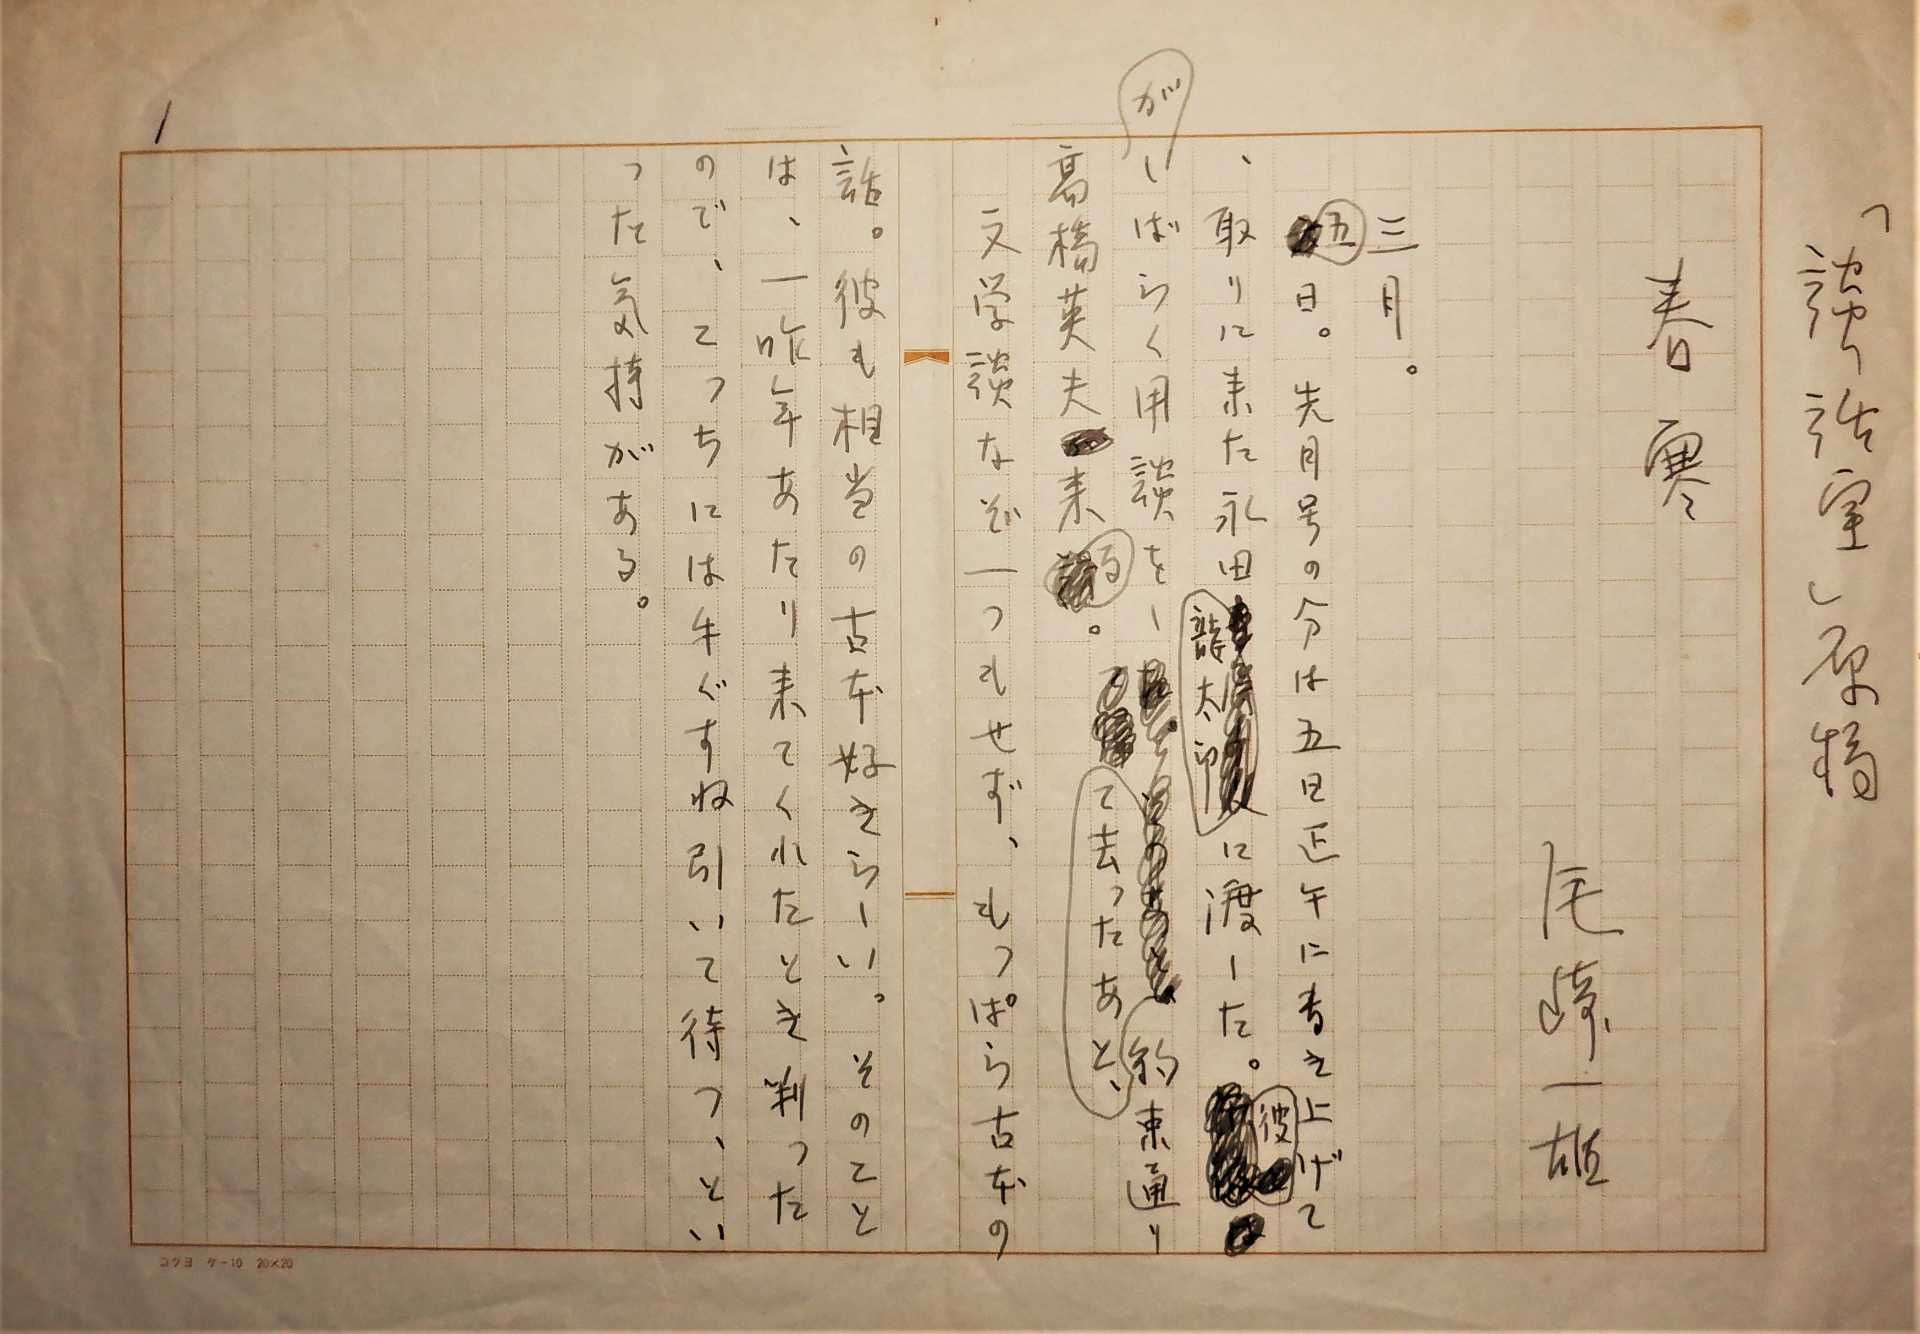 「談話室」原稿
春寒
尾崎一雄
三月。
五日。先月号の分は五日正午に書き上げて
、取りに来た永田龍太郎に渡した。彼
がしばらく用談をして去ったあと、約束通り
高橋英夫来る。
文学談など一つもせず、もっぱら古本の
話。彼も相当の古本好きらしい。そのこと
は、一昨年あたり来てくれたとき判った
ので、こっちには手ぐすね引いて待つ、とい
った気持がある。
1
コクヨ ケー10 20×20